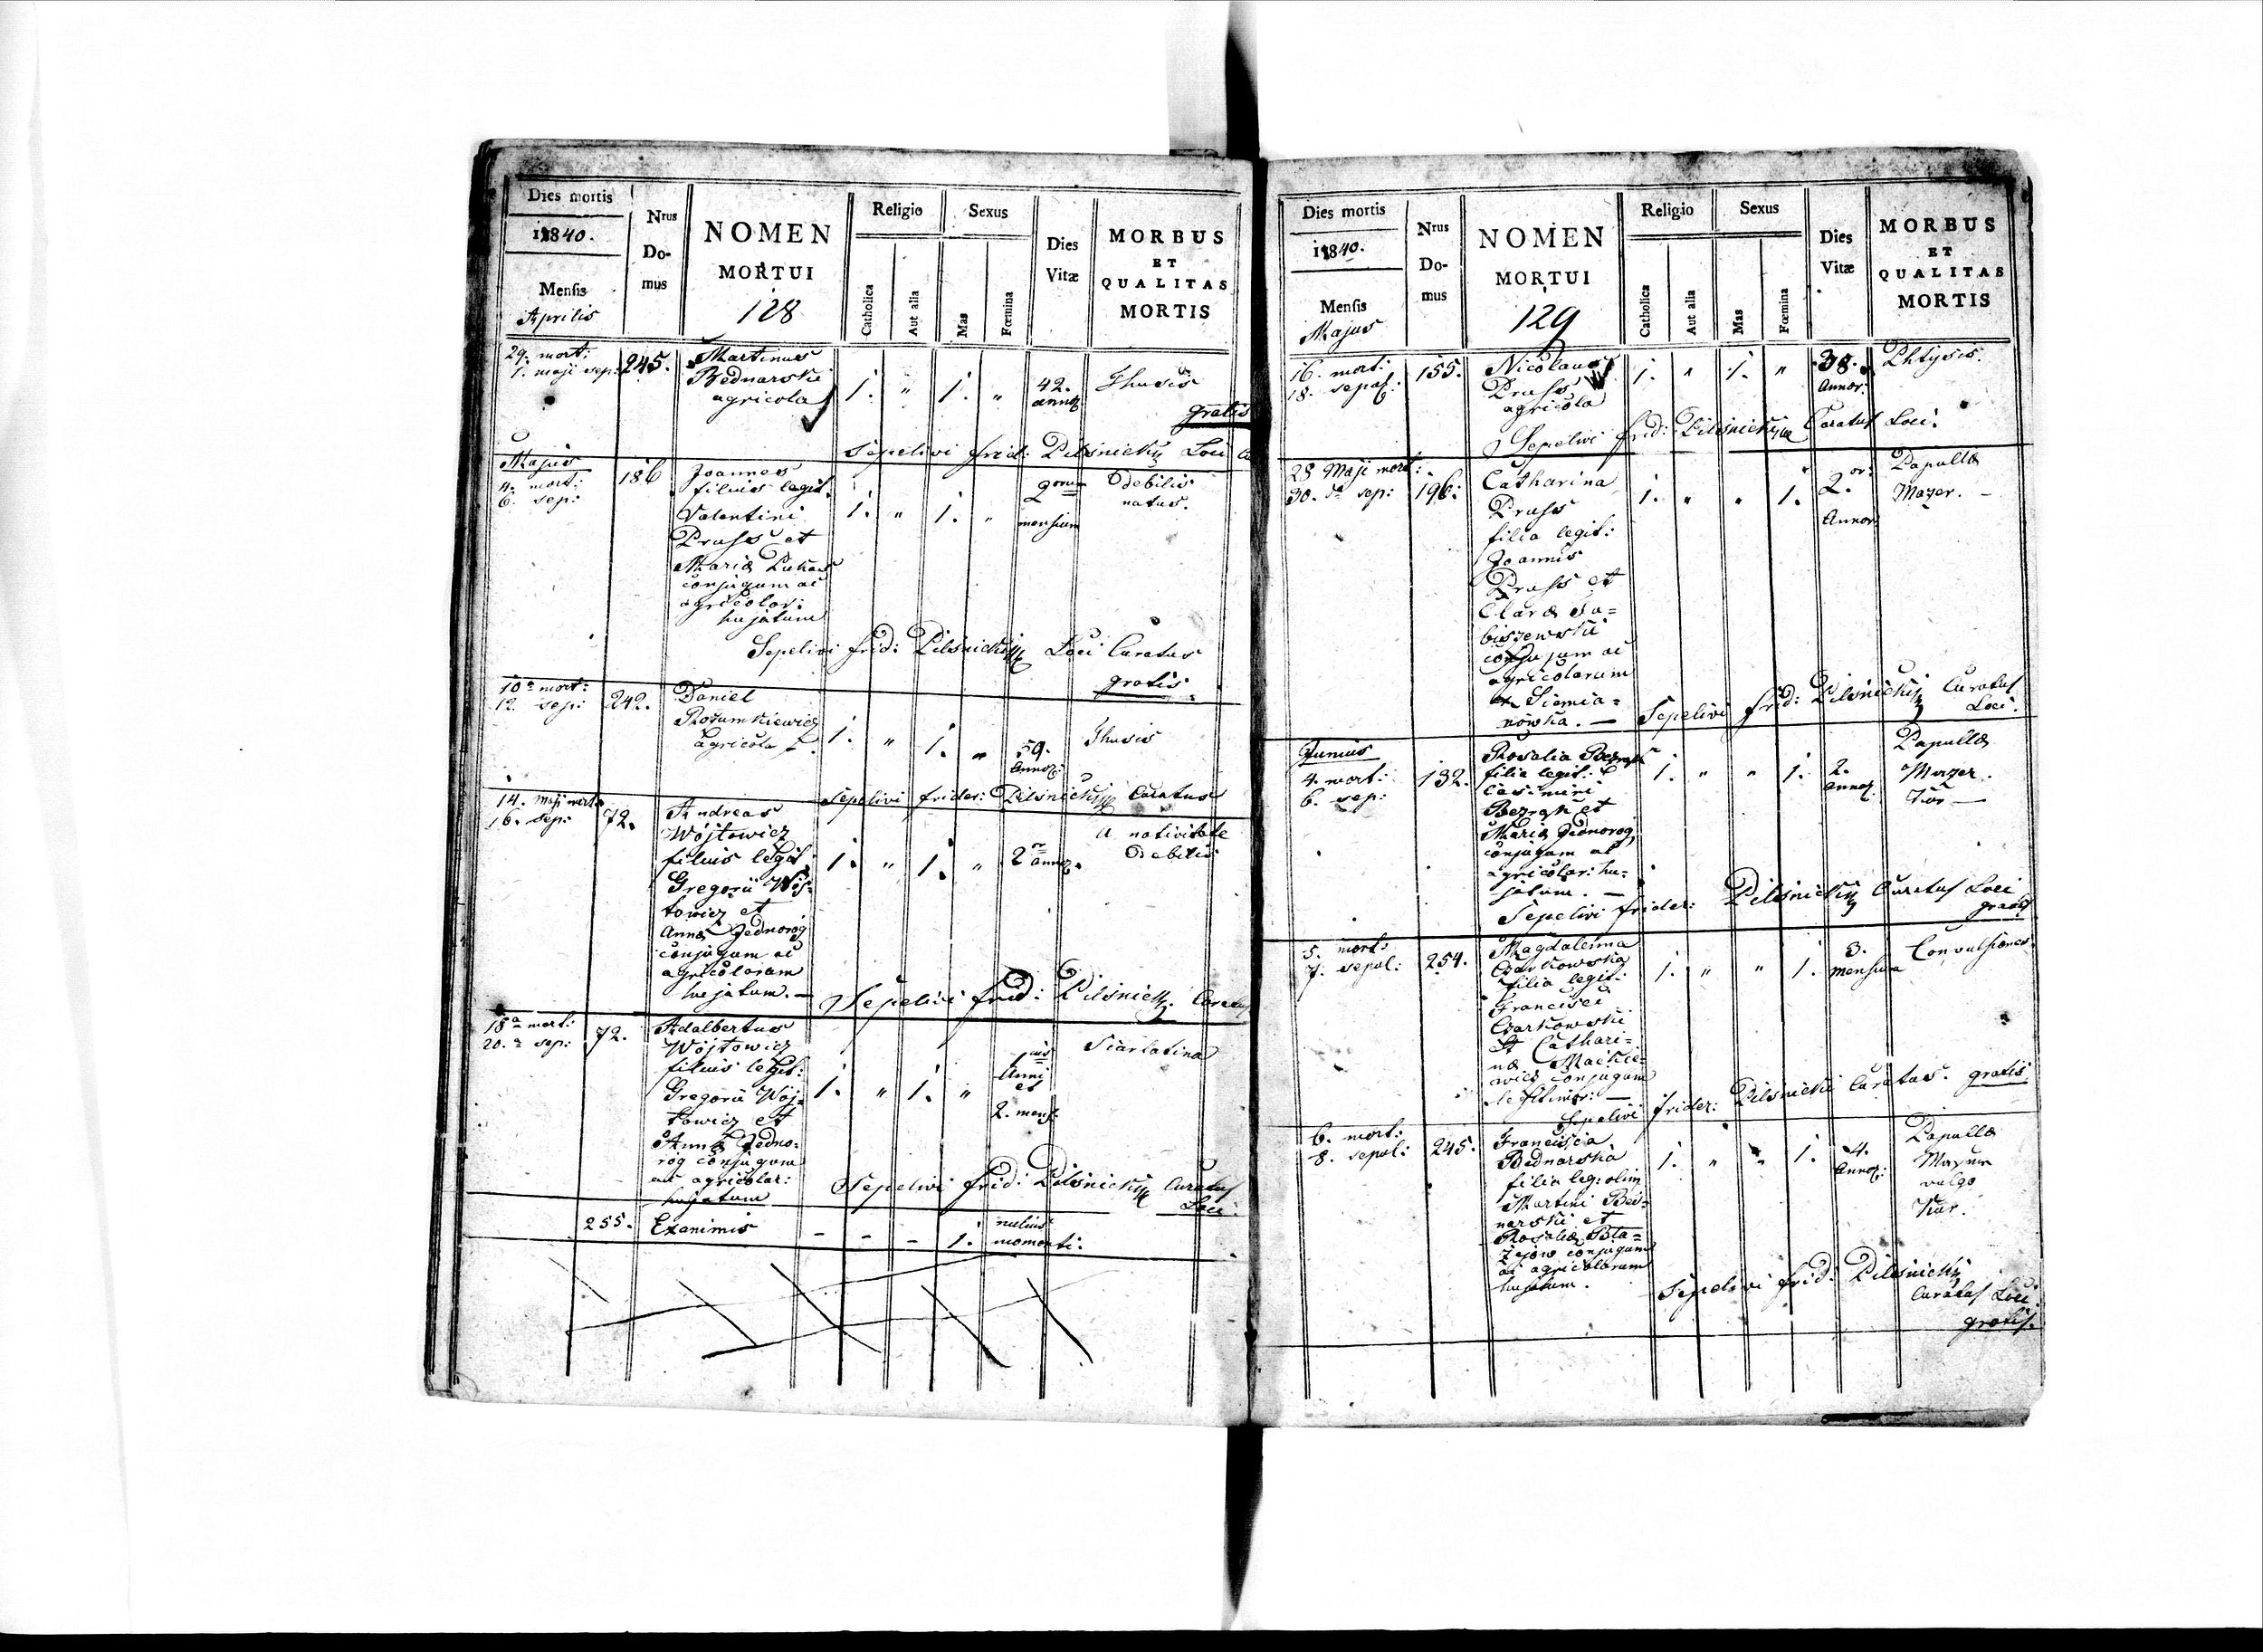 Dies mortis
1840.
Mensis
Aprilis
Nrus
Do-
mus
NOMEN
MORTUI
128
Religio
Catholica
Aut alia
Sexus
Mas
Fœmina
Dies
Vitæ
MORBUS
ET
QUALITAS
MORTIS
29. mort:
1. maji sep:
245.
Martinus
Bednarski
agricola
1. " 1. "
42.
annor
Thusis
gratis
Sepelivi frid: Pilsnicki Loci
Majus
4. mort:
6. sep:
186
Joannes
filius legit.
Valentini
Pruss et
Maria Lukas
conjugum ac
agricolor:
hujatum
1. " 1. "
2 orum
mensium
debilis
natus.
Sepelivi frid: Pilsnicki Loci Curatus
gratis
10a mort:
12. sep:
242.
Daniel
Rozumkiewicz
agricola
1. " 1. "
59.
Annor:
Thusis
Sepelivi frider: Pilsnicki Curatus
14. maji mort
16. sep:
72.
Andreas
Wojtowicz
filius legit.
Gregorii Woj-
towicz et
Anna Jednorog
conjugum ac
agricolarum
hujatum. —
1. " 1. "
2 annor.
a nativitate
Debilis
Sepelivi frid: Pilsnicki. Curatus
18a mort:
20.a sep:
72.
Adalbertus
Wojtowicz
filius legit:
Gregorii Woj-
towicz et
Anna Jedno:
rog conjugum
ac agricolar:
hujatum
1. " 1. "
1 ius
Anni
et
2. mens.
Scarlatina
Sepelivi frid: Pilsnicki Curatus
Loci.
255.
Exanimis
- - - 1.
nulius
momenti.
Dies mortis
1840.
Mensis
Majus
Nrus
Do-
mus
NOMEN
MORTUI
129
Religio
Catholica
Aut alia
Sexus
Mas
Fœmina
Dies
Vitæ
MORBUS
ET
QUALITAS
MORTIS
16. mort:
18. sepul:
155.
Nicolaus
Pruss
agricola
1. " 1. "
38.
Annor:
Phtysis.
Sepelivi frid: Pilsnicki Curatus Loci.
28 Maji mort:
30. sep:
196:
Catharina
Pruss
filia legit:
Joannis
Pruss et
Clara Sa=
biszewski
conjugum ac
agricolarum
Siemia=
nowka. —
1. " " 1.
2. or:
Annor:
Papulla
Mazer. —
Sepelivi frid: Pilsnicki Curatus
Loci.
Junius
4. mort:
6. sep:
132.
Rosalia
filia legit:
Casimiri
et
Maria Jednorog
conjugum ac
agricolar: hu=
jatum. —
1. " " 1.
2.
annor.
Papulla
Mazer.
Kur —
Sepelivi frider: Pilsnicki Curatus Loci
gratis
5. mort:
7. sepul:
254.
Magdalenna
Czarkowska
filia legit:
Francisci
Czarkowski
et Cathari=
na Mackie=
wicz conjugum
legitimor: —
1. " " 1.
3.
mensium
Convulsiones.
Sepelivi frider: Pilsnicki Curatus. gratis
6. mort:
8. sepul:
245.
Francisca
Bednarska
filia leg: olim
Martini Bed-
narski et
Rosalia Bla=
zejow conjugum
ac agricolarum
hujatum.
1. " " 1.
4.
Annor:
Papulla
vulgo
Kur.
Sepelivi frid: Pilsnicki
Curatus Loci.
gratis.